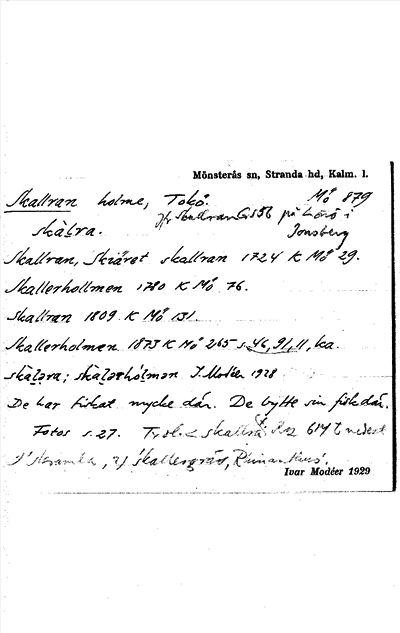 Mönsterås sn, Stranda hd, Kalm. l.
Skallran holme, Tokö. Mö 879
jfr Skallran G s 56 på Lövö i
skàlra. Jonsberg
Skallran, Skiäret skallran 1724 K Mö 29.
Skallerhollmen 1780 K Mö 76.
Skallran 1809 K Mö 131.
Skallerholmen 1873 K Mö 265 s. 46, 91, 11, ka.
skàlәra; skàlәrhólmәn I. Modéer 1928
De har fiskat mycke där. De bytte sin fisk där.
Fotos s. 27. Tvol. < skallra Rz 614 b nederst
1) skramla, 2) skallergräs, Rhinanthus.
Ivar Modéer 1929